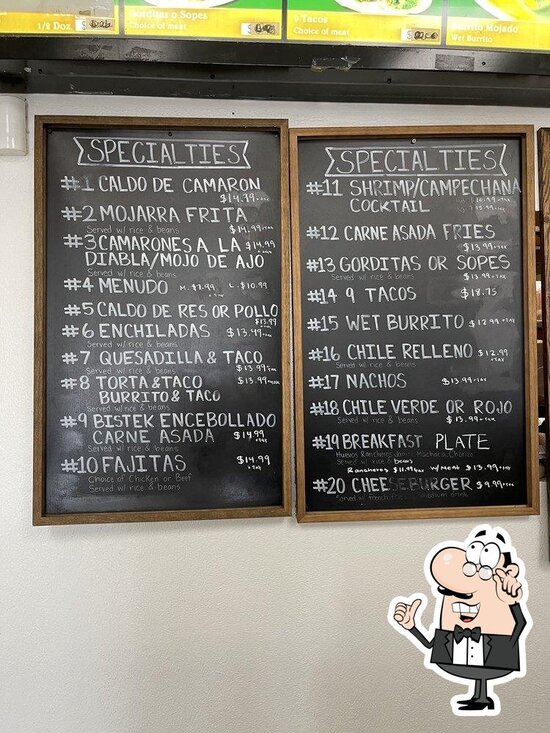 Gorditas o Sopes
1/2 Doz.
Choice of meat
9 Tacos
Choice of meat
Burrito Mojado
Wet Burrito
SPECIALTIES
#1 CALDO DE CAMARON
$14.39+TAX
#2 MOJARRA FRITA
Served w/ rice & beans $14.99+TAX
#3 CAMARONES A LA $14.99
DIABLA/MOJO DE AJO +TAX
Served w/ rice & beans
#4 MENUDO M. $7.99 L. $10.99
+TAX
#5 CALDO DE RES OR POLLO
$13.99
#6 ENCHILADAS $13.49+TAX
Served w/ rice & beans
#7 QUESADILLA & TACO
Served w/ rice & beans $13.99+TAX
#8 TORTA & TACO $13.99+TAX
BURRITO & TACO
Served w/ rice & beans
#9 BISTEK ENCEBOLLADO
CARNE ASADA $14.99
Served w/ rice & beans +TAX
#10 FAJITAS $14.99
Choice of Chicken or Beef +TAX
Served w/ rice & beans
SPECIALTIES
#11 SHRIMP/CAMPECHANA
COCKTAIL
#12 CARNE ASADA FRIES
$13.99+TAX
#13 GORDITAS OR SOPES
Served w/ rice & beans $13.99+TAX
#14 9 TACOS $18.75
#15 WET BURRITO $12.99+TAX
#16 CHILE RELLENO $12.99
Served w/ rice & beans +TAX
#17 NACHOS $13.99+TAX
#18 CHILE VERDE OR ROJO
Served w/ rice & beans $13.99+TAX
#19 BREAKFAST PLATE
Huevos Rancheros, Jamon, Machaca, Chorizo
Served w/ rice & beans
Rancheros $11.99+TAX w/Meat $13.99+TAX
#20 CHEESEBURGER $9.99+TAX
Served w/ french fries medium drink